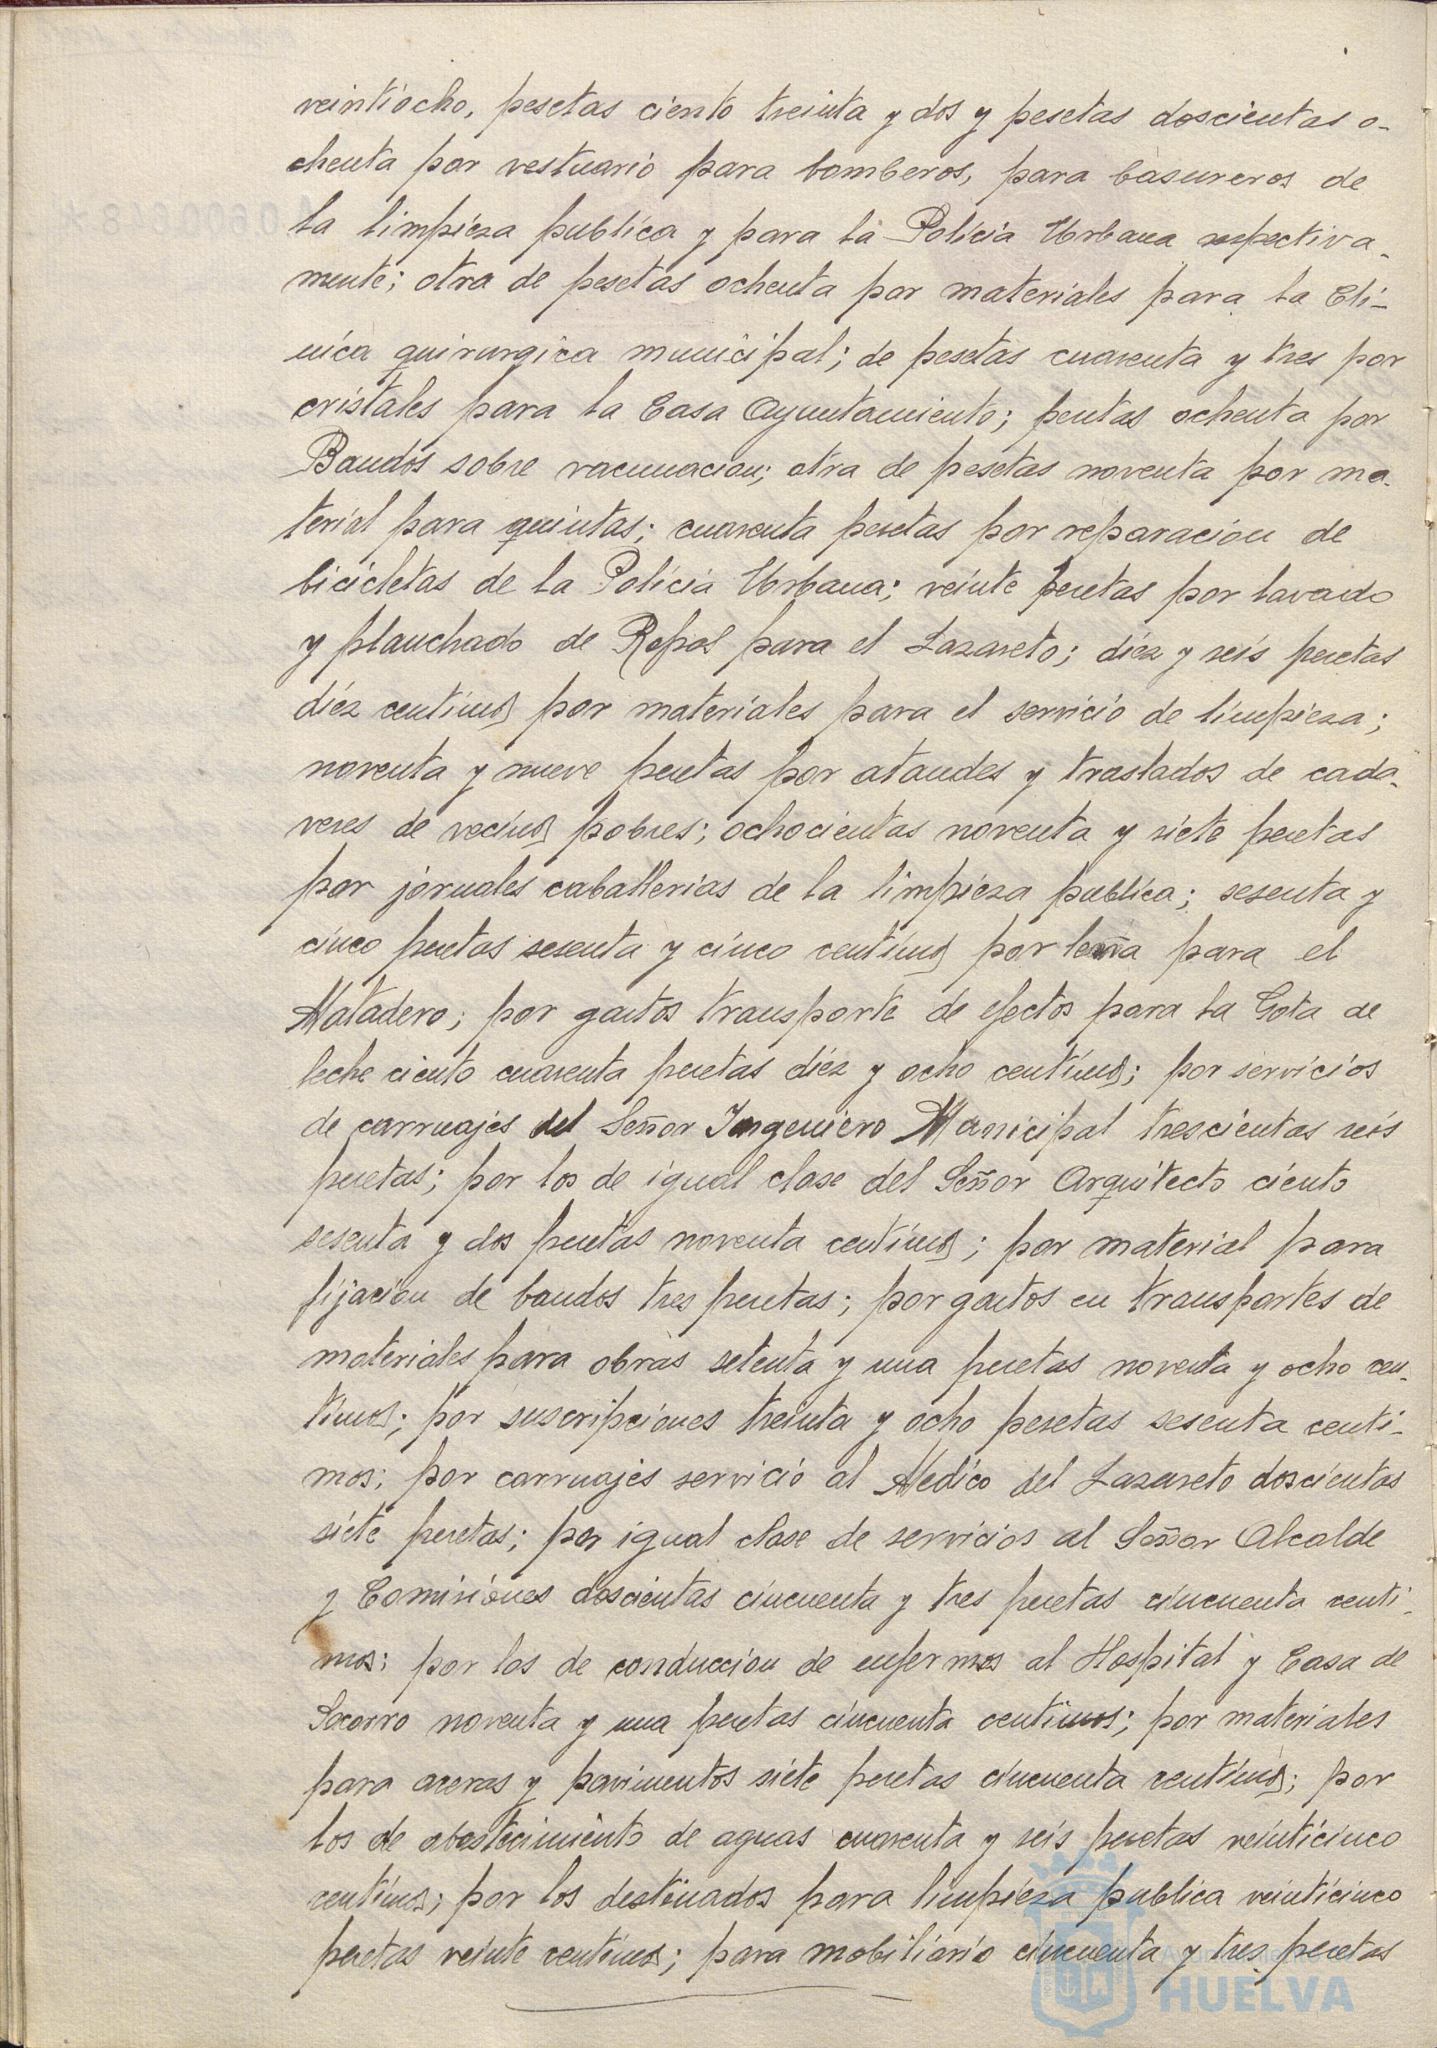 veintiocho, pesetas ciento treinta y dos y pesetas doscientas o-
chenta por vestuario para bomberos, para basureros de
la limpieza publica y para la Policia Urbana respectiva-
mente; otra de pesetas ochenta por materiales para la Cli-
nica quirurgica municipal; de pesetas cuarenta y tres por
cristales para la Casa Ayuntamiento; pesetas ochenta por
Bandos sobre vacunacion; otra de pesetas noventa por ma-
terial para quintas; cuarenta pesetas por reparacion de
bicicletas de la Policia Urbana; veinte pesetas por lavado
y planchado de Ropas para el Lazareto; diez y seis pesetas
diez centimos por materiales para el servicio de limpieza;
noventa y nueve pesetas por ataudes y traslados de cada-
veres de vecinos pobres; ochocientas noventa y siete pesetas
por jornales caballerias de la limpieza publica; sesenta y
cinco pesetas sesenta y cinco centimos por leña para el
Matadero; por gastos transporte de efectos para la Gota de
leche ciento cuarenta pesetas diez y ocho centimos; por servicios
de carruajes del Señor Ingeniero Municipal trescientas seis
pesetas; por los de igual clase del Señor Arquitecto ciento
sesenta y dos pesetas noventa centimos; por material para
fijacion de bandos tres pesetas; por gastos en transportes de
materiales para obras setenta y una pesetas noventa y ocho cen-
timos; por suscripciones treinta y ocho pesetas sesenta centi-
mos; por carruajes servicio al Medico del Lazareto doscientas
siete pesetas; por igual clase de servicios al Señor Alcalde
y Comisiones doscientas cincuenta y tres pesetas cincuenta centi-
mos; por los de conduccion de enfermos al Hospital y Casa de
Socorro noventa y una pesetas cincuenta centimos; por materiales
para aceras y pavimentos siete pesetas cincuenta centimos; por
los de abastecimiento de aguas cuarenta y seis pesetas veinticinco
centimos; por los destinados para limpieza publica veinticinco
pesetas veinte centimos; para mobiliario cincuenta y tres pesetas
HUELVA